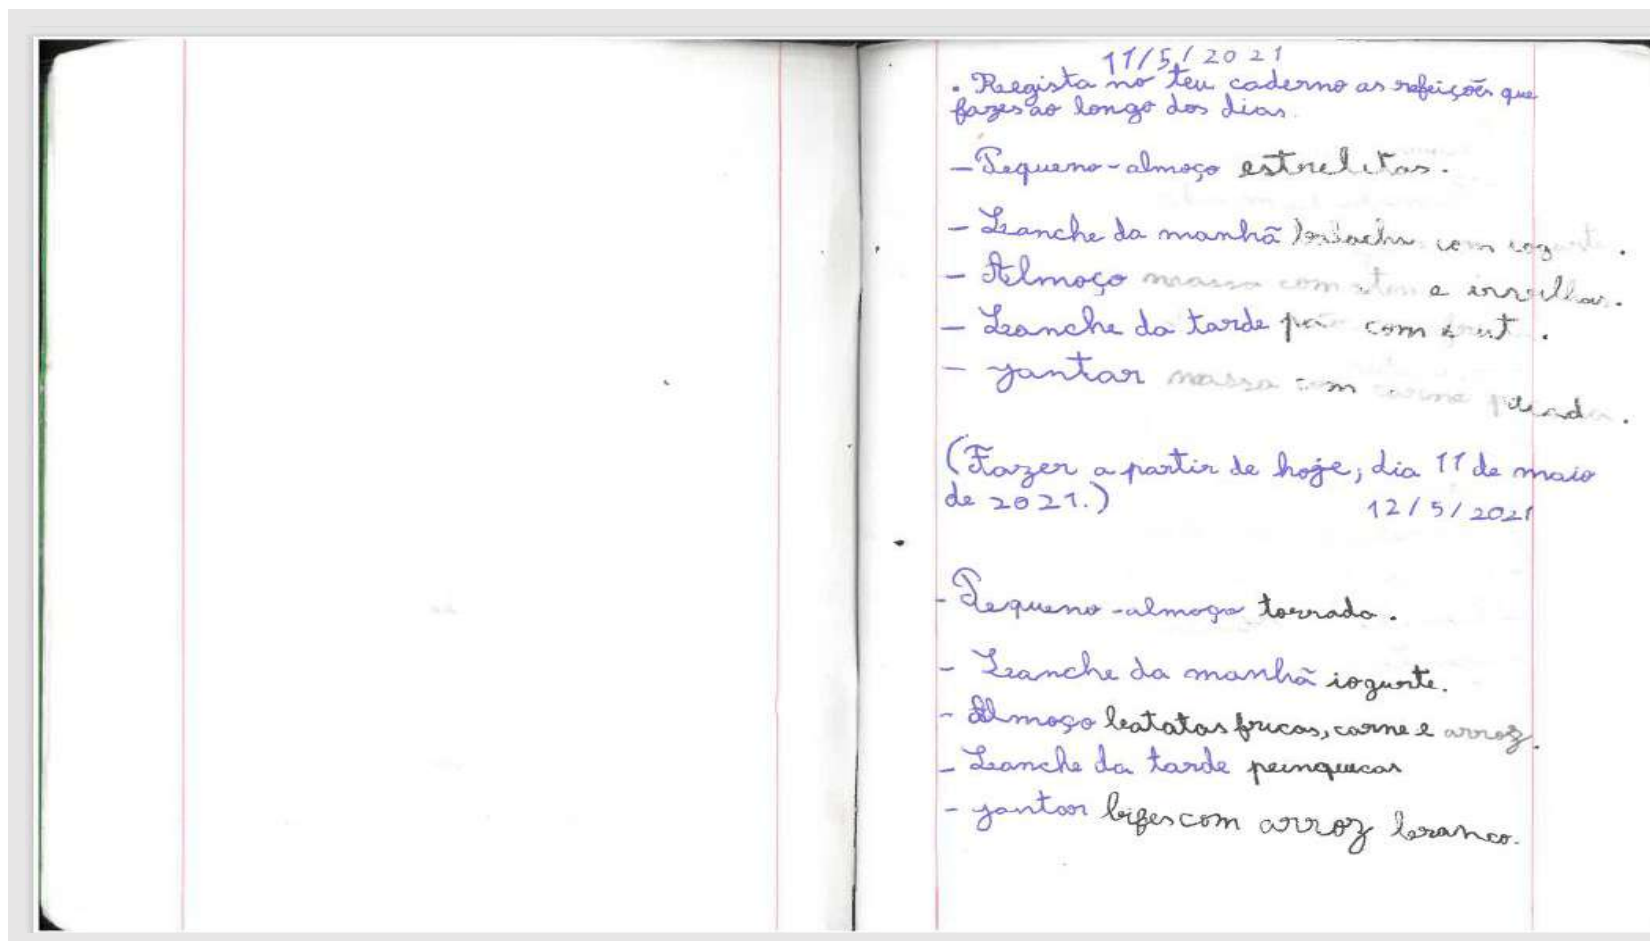 11/5/2021
• Regista no teu caderno as refeições que
fazes ao longo dos dias.
- Pequeno-almoço estrelitas.
- Lanche da manhã com
- Almoço massa com atum e irvilhas.
- Lanche da tarde pão com
- jantar massa com carne picada.
(Fazer a partir de hoje, dia 11 de maio
de 2021.)
12/5/2021
- Pequeno-almoço torrada.
- Lanche da manhã iogurte.
- Almoço batatas fricas, carne e arroz.
- Lanche da tarde
- jantar bifes com arroz branco.